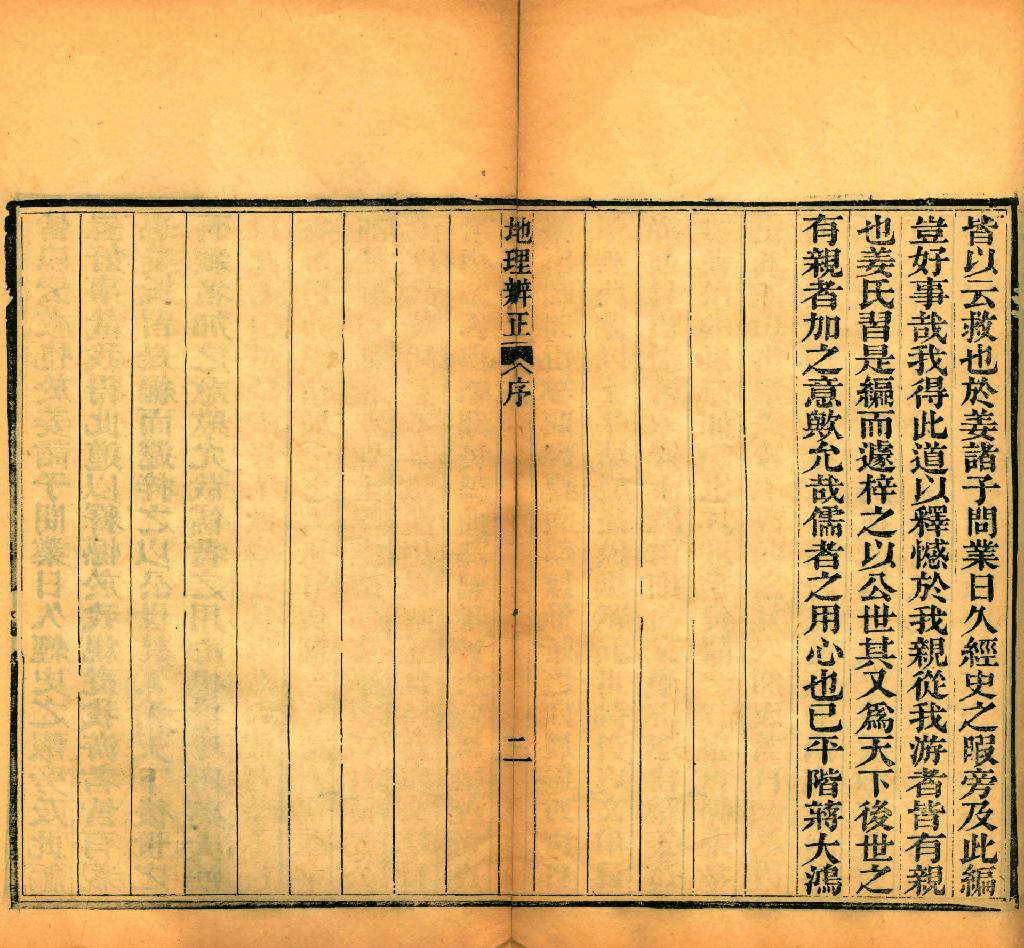 皆以云救也於姜諸子問業日久經史之暇旁及此編
豈好事哉我得此道以釋憾於我親從我游者皆有親
也姜氏習是編而遽梓之以公世其又爲天下後世之
有親者加之意歟允哉儒者之用心也已平階蔣大鴻
地理辨正 序 二